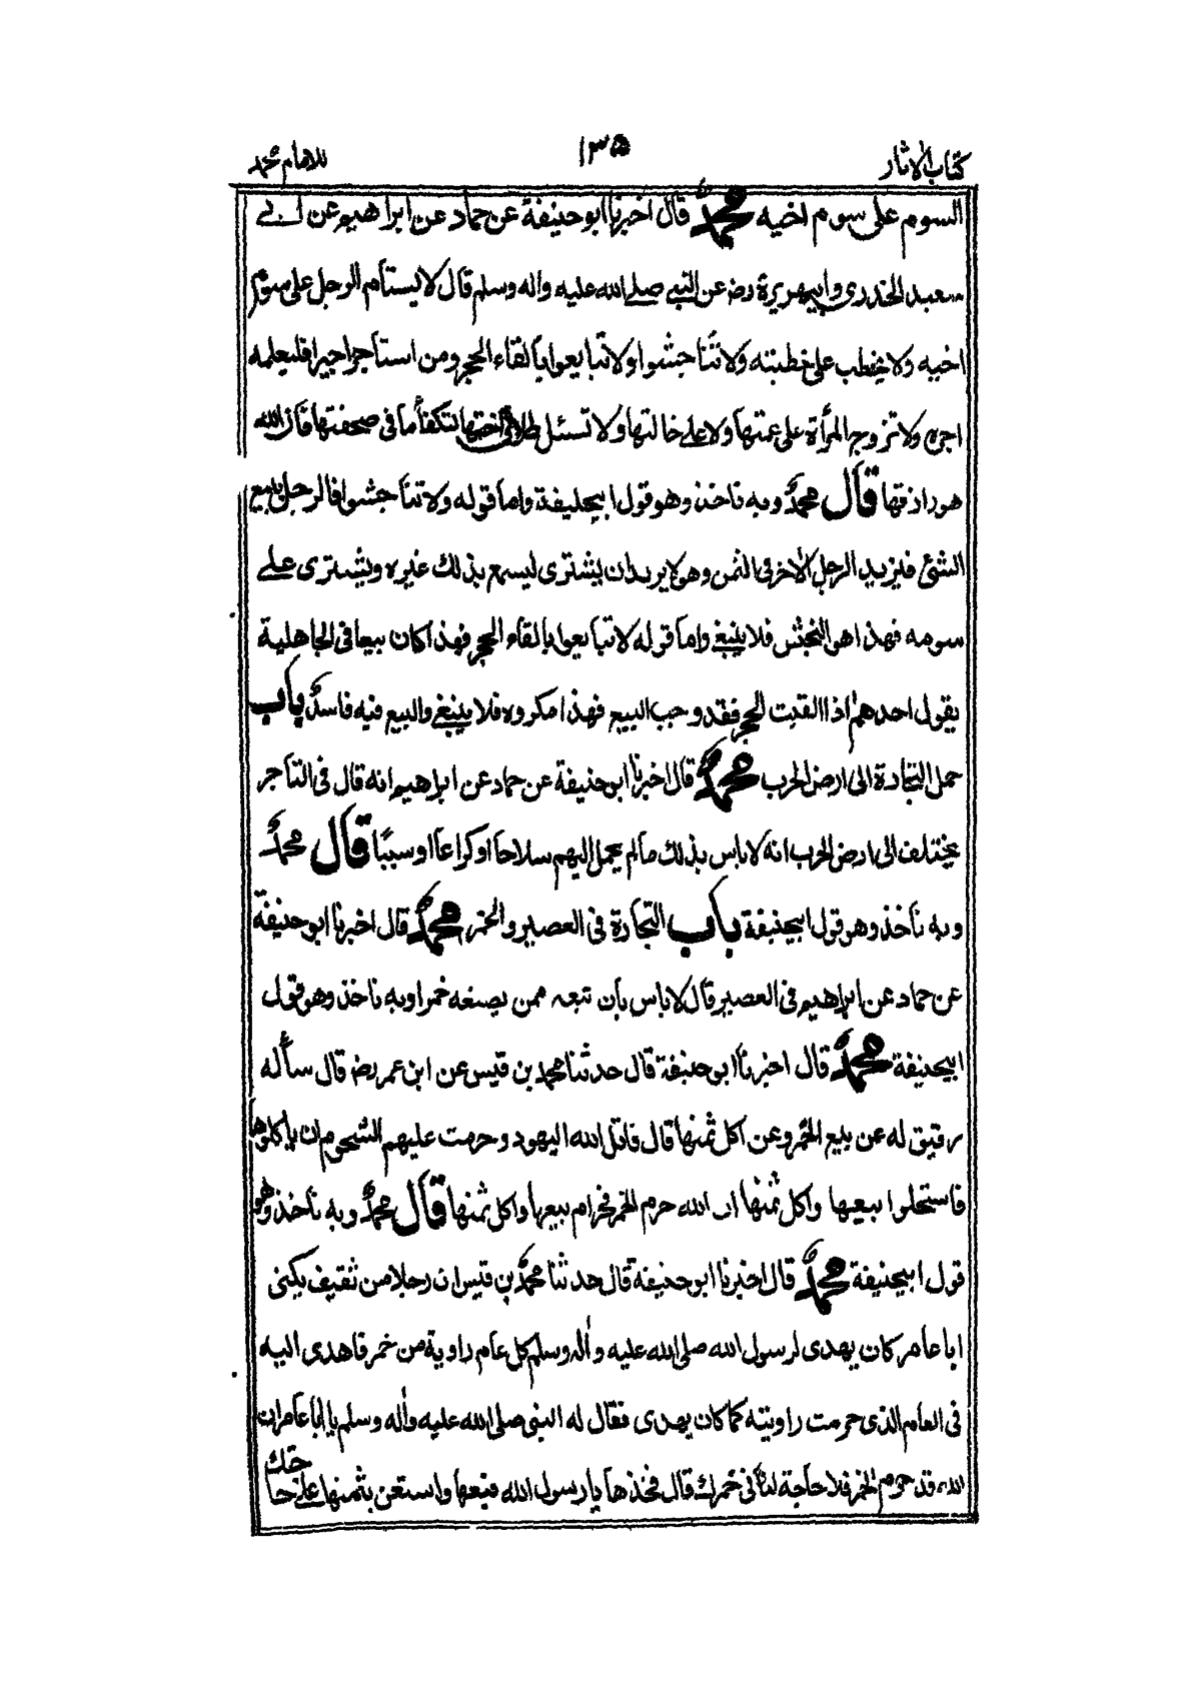 كتاب الاثار
١٣٥
للامام محمد
السوم على سوم اخيه محمدٌ قال اخبرنا ابو حنيفة عن حماد عن ابراهيم عن ابي
سعيد الخدرى وابيهريرة رض عن النبي صلى الله عليه واله وسلم قال لا يستام الرجل على سوم
اخيه ولا يخطب على خطبته ولا تناجشوا ولا تبايعوا بالقاء الحجر ومن استأجر اجيرا فليعلمه
اجره ولا تزوج المرأة على عمتها ولا على خالتها ولا تسئل طلاق اختها لتكفأ ما فى صحفتها فان الله
هو رازقها قال محمدٌ وبه ناخذ وهو قول ابيحنيفة واما قوله ولا تناجشوا فالرجل يبيع
الشئ فيزيد الرجل الاخر فى الثمن وهو لا يريد ان يشترى ليسمع بذلك غيره ويشترى على
سومه فهذا هو النجش فلا ينبغي واما قوله لا تبايعوا بالقاء الحجر فهذا كان بيعا فى الجاهلية
يقول احدهم اذا القيت الحجر فقد وجب البيع فهذا مكروه فلا ينبغي والبيع فيه فاسد باب
حمل التجارة الى ارض الحرب محمدٌ قال اخبرنا ابو حنيفة عن حماد عن ابراهيم انه قال فى التاجر
يختلف الى ارض الحرب انه لا باس بذلك ما لم يحمل اليهم سلاحا او كراعا او سبيًا قال محمدٌ
وبه ناخذ وهو قول ابيحنيفة باب التجارة فى العصير والخمر محمدٌ قال اخبرنا ابو حنيفة
عن حماد عن ابراهيم فى العصير قال لا باس بان تبيعه ممن يصنعه خمرا وبه ناخذ وهو قول
ابيحنيفة محمدٌ قال اخبرنا ابو حنيفة قال حدثنا محمد بن قيس عن ابن عمر رض قال سأله
رقيق له عن بيع الخمر وعن اكل ثمنها قال قاتل الله اليهود وحرمت عليهم الشحوم ان ياكلوها
فاستحلوا بيعها واكل ثمنها ان الله حرم الخمر فحرام بيعها واكل ثمنها قال محمدٌ وبه ناخذ وهو
قول ابيحنيفة محمدٌ قال اخبرنا ابو حنيفة قال حدثنا محمدٌ بن قيس ان رجلا من ثقيف يكنى
ابا عامر كان يهدى لرسول الله صلى الله عليه واله وسلم كل عام راوية من خمر فاهدى اليه
فى العام الذى حرمت راويته كما كان يهدى فقال له النبى صلى الله عليه واله وسلم يا ابا عامر ان
الله قد حرم الخمر فلا حاجة لنا فى خمرك قال فخذها يا رسول الله فبعها واستعن بثمنها على حا
جتك